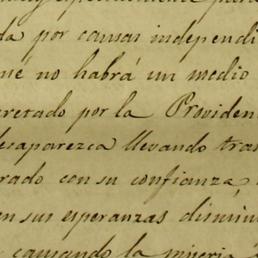 da por causas independi
é no habrá un medio
cretado por la Providen
desaparezca llevando tra
rado con su confianza,
en sus esperanzas disminu
causando la miseria